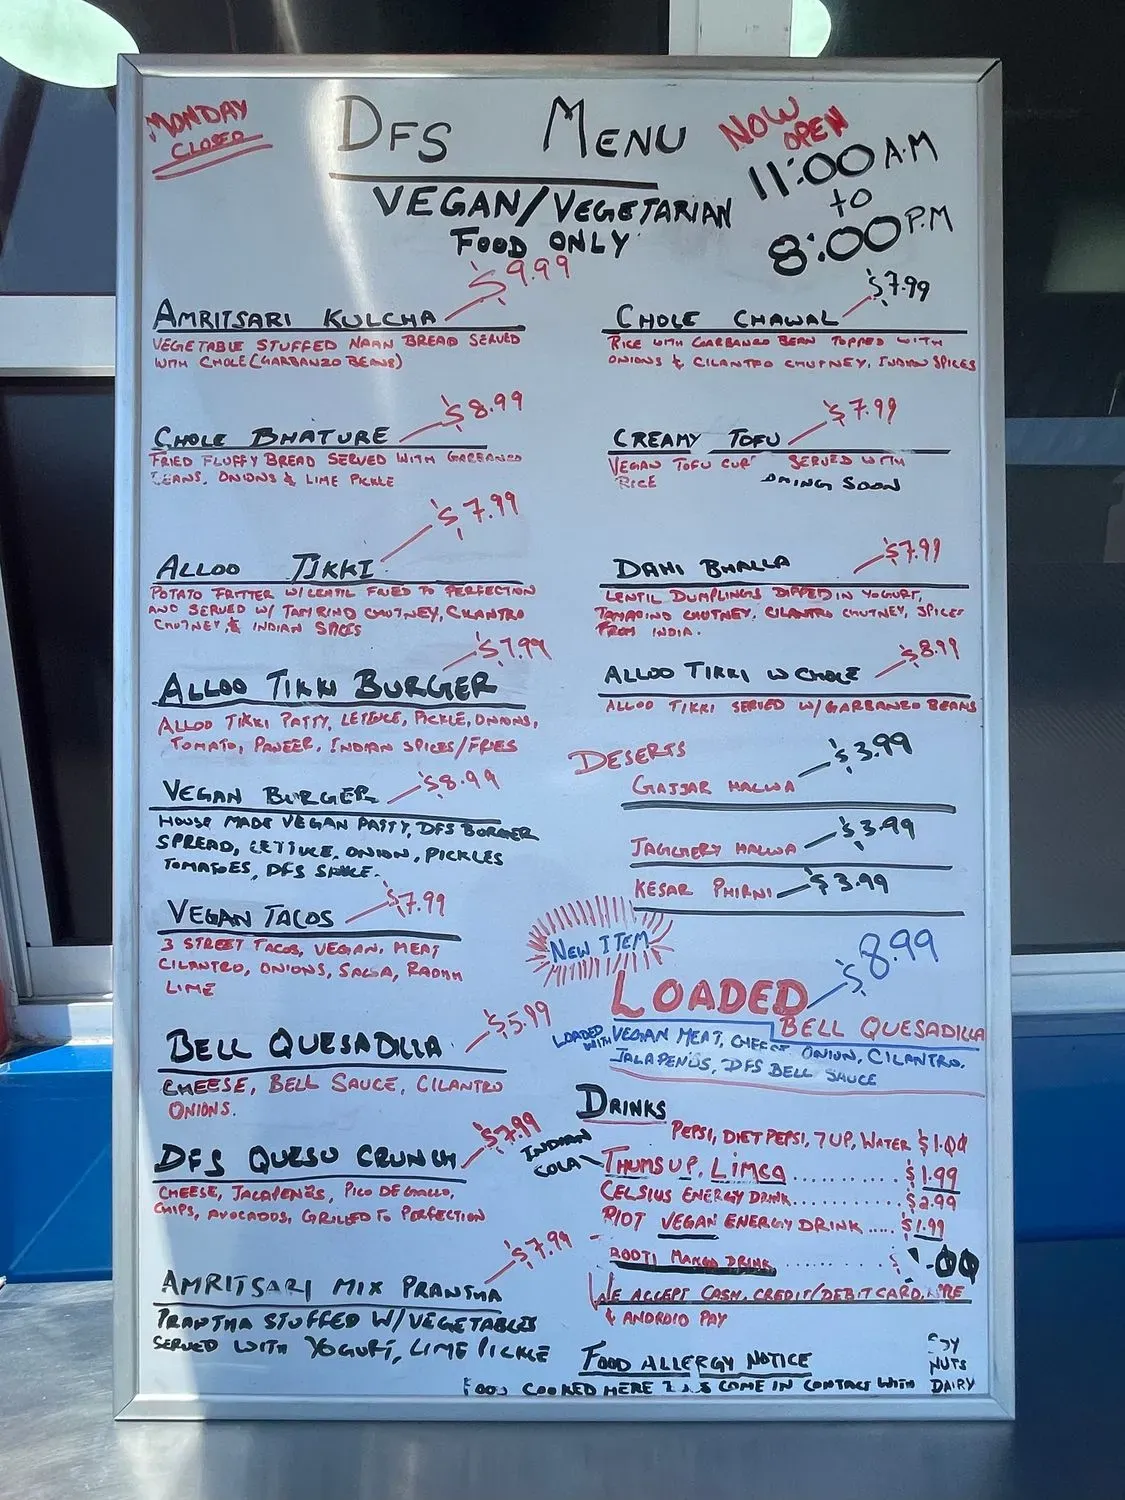 MONDAY
CLOSED
DFS MENU
NOW
OPEN
11:00 A.M
to
8:00 P.M
VEGAN/VEGETARIAN
FOOD ONLY
$9.99
AMRITSARI KULCHA
VEGETABLE STUFFED NAAN BREAD SERVED
WITH CHOLE (GARBANZO BEANS)
$8.99
CHOLE BHATURE
FRIED FLUFFY BREAD SERVED WITH GARBANZO
BEANS, ONIONS & LIME PICKLE
$7.99
ALLOO TIKKI
POTATO FRITTER W/LENTIL FRIED TO PERFECTION
AND SERVED W/ TAMRIND CHUTNEY, CILANTRO
CHUTNEY, & INDIAN SPICES
$7.99
ALLOO TIKKI BURGER
ALLOO TIKKI PATTY, LETEUCE, PICKLE, ONIONS,
TOMATO, PANEER, INDIAN SPICES/FRIES
$8.99
VEGAN BURGER
HOUSE MADE VEGAN PATTY, DFS BURGER
SPREAD, LETTUCE, ONION, PICKLES
TOMATOES, DFS SAUCE.
$7.99
VEGAN TACOS
3 STREET TACOS, VEGAN, MEAT
CILANTRO, ONIONS, SALSA, RADISH
LIME
$5.99
BELL QUESADILLA
CHEESE, BELL SAUCE, CILANTRO
ONIONS.
$7.99
DFS QUESO CRUNCH
CHEESE, JALAPENOS, PICO DE GALLO,
CHIPS, AVOCADOS, GRILLED TO PERFECTION
$7.99
AMRITSARI MIX PRANTHA
PRANTHA STUFFED W/VEGETABLES
SERVED WITH YOGURT, LIME PICKLE
$7.99
CHOLE CHAWAL
RICE WITH GARBANZO BEAN TOPPED WITH
ONIONS & CILANTRO CHUTNEY, INDIAN SPICES
$7.99
CREAMY TOFU
VEGAN TOFU SERVED WITH
RICE SOON
$7.99
DAHI BHALLA
LENTIL DUMPLINGS DIPPED IN YOGURT,
TAMARIND CHUTNEY, CILANTRO CHUTNEY, SPICES
FROM INDIA.
$8.99
ALLOO TIKKI W CHOLE
ALLOO TIKKI SERVED W/GARBANZO BEANS
DESERTS
$3.99
GAJJAR HALWA
JAGGHERY HALWA $3.99
KESAR PHIRNI $3.99
NEW ITEM
$8.99
LOADED
BELL QUESADILLA
LOADED WITH VEGAN MEAT, CHEESE ONION, CILANTRO.
JALAPENOS, DFS BELL SAUCE
DRINKS
PEPSI, DIET PEPSI, 7UP, WATER $1.00
INDIAN
COLA
THUMS UP, LIMCA ........... $1.99
CELSIUS ENERGY DRINK.......... $2.99
RIOT VEGAN ENERGY DRINK ..... $1.99
MANGO DRINK
WE ACCEPT CASH, CREDIT/DEBIT CARD,
& ANDROID PAY
FOOD ALLERGY NOTICE
FOOD COOKED HERE COME IN CONTACT WITH
NUTS
DAIRY